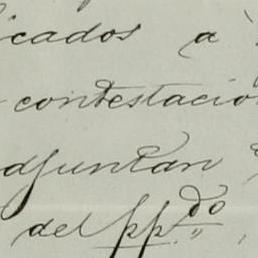 icados a
contestacio
adjuntan
del pp.do